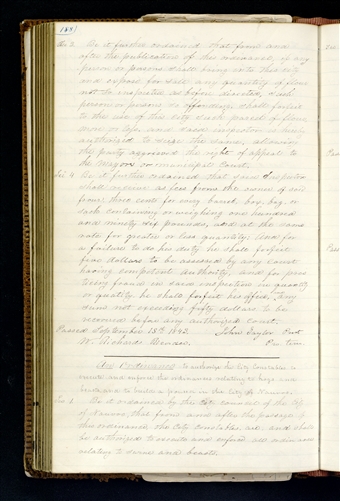 188)
Sec 3 Be it further ordained that from and
after the publication of this ordinance, if any
person or persons shall bring into this city
and expose for sale any quantity of flour
not so inspected as before directed, such
person or persons so offending shall forfeit
to the use of this city such parcel of flour
more or less and said inspector is hereby
authorized to seize the same, allowing
the party aggrieved the right of appeal to
the Mayors or municipal Court.
Sec. 4 Be it further ordained that said Inspector
shall receive as fees from the owner of said
flour, three cents for every barrel box, bag, or
sack containing or weighing one hundred
and ninety six pounds, and at the same
rate for greater or less quantity, And for
a failure to do his duty he shall forfeit
five dollars to be assessed by any court
having competent authority, and for
being found in said inspection in quantity
or quality he shall forfeit his office, any
sum not exceeding fifty dollars to be
recovered before any authorized Court.
Passed September 18th 1843. John Taylor Prest
W. Richards Recorder. Pro tem
An Ordinance to authorize the City Constables to
execute and enforce the ordinances relating to hogs and
Sec 1 Be it ordained by the City council of the City
of Nauvoo, that from and after the passage of
this ordinance the City Constables, are and shall
be authorized to execute and enforce all ordinances
relating to swine and